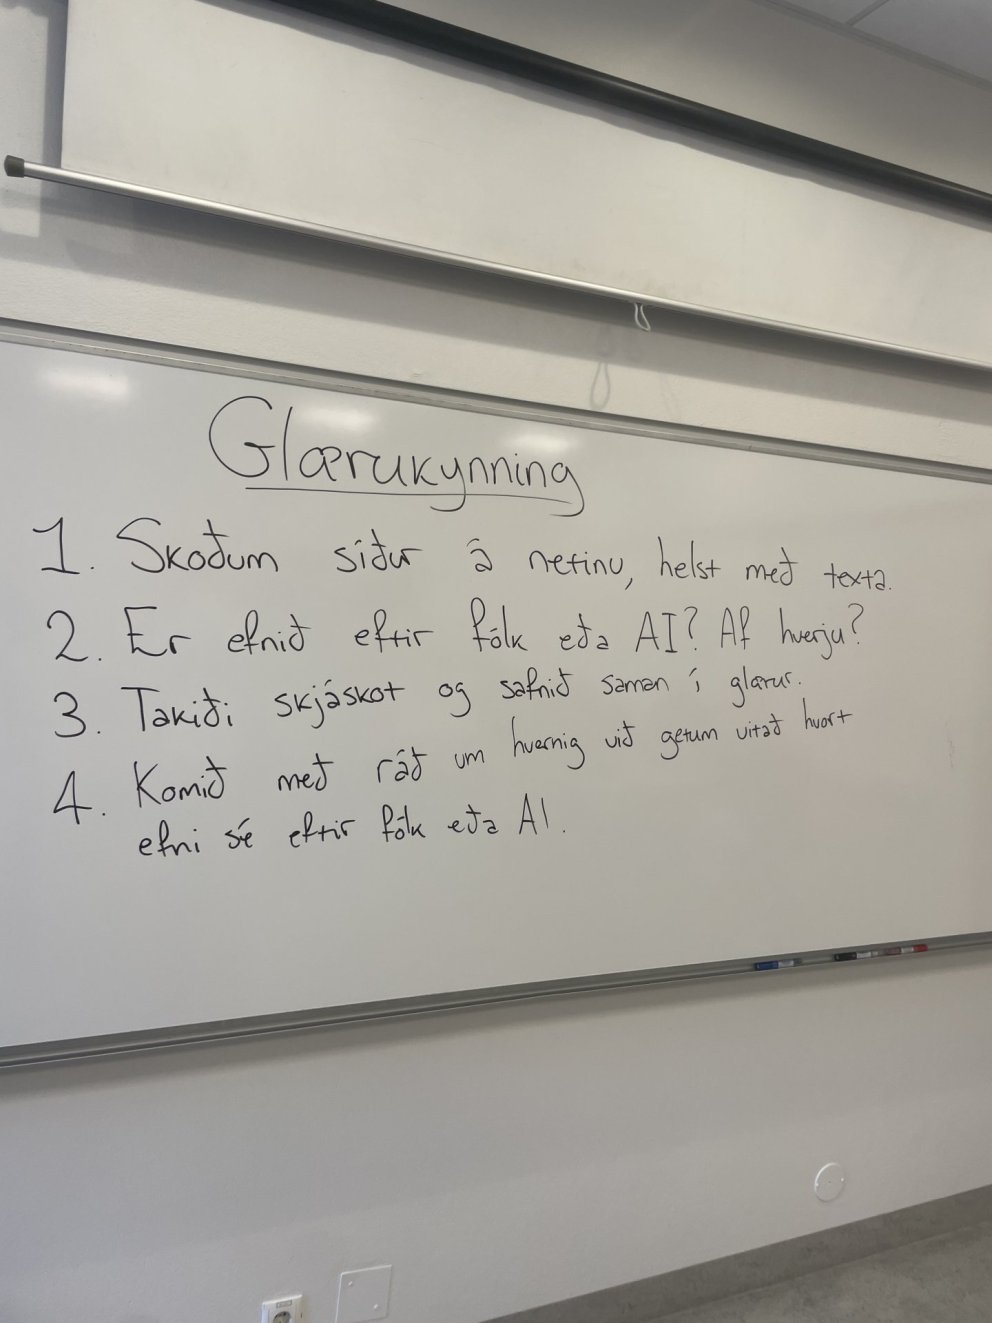 Glærukynning
1. Skoðum síður á netinu, helst með texta.
2. Er efnið eftir fólk eða AI? Af hverju?
3. Takiði skjáskot og safnið saman í glærur.
4. Komið með ráð um hvernig við getum vitað hvort
efni sé eftir fólk eða AI.